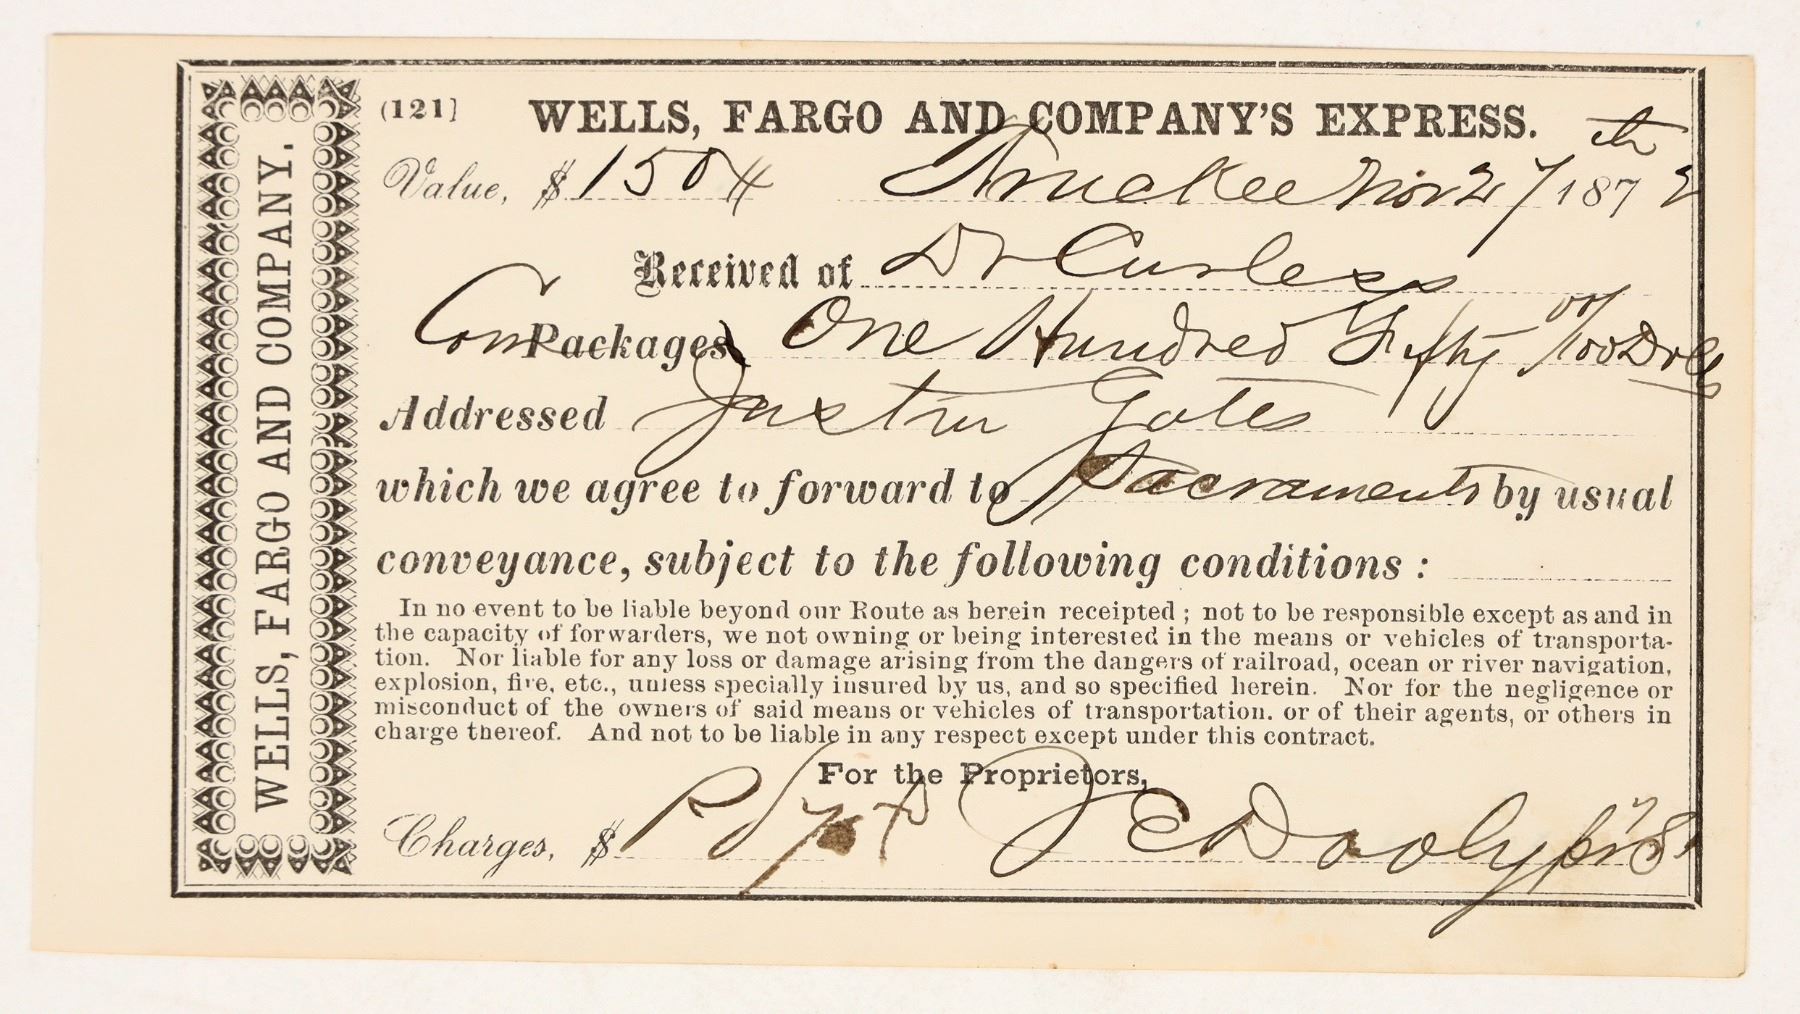 WELLS, FARGO AND COMPANY.
(121] WELLS, FARGO AND COMPANY'S EXPRESS.
Value, $ 150 Truckee Nov 27th 1872
Received of Dr Curless
Com Packages One Hundred Fifty 00/100 Dolls
Addressed Justin Gates
which we agree to forward to Sacramento by usual
conveyance, subject to the following conditions :
In no event to be liable beyond our Route as herein receipted ; not to be responsible except as and in
the capacity of forwarders, we not owning or being interested in the means or vehicles of transporta-
tion. Nor liable for any loss or damage arising from the dangers of railroad, ocean or river navigation,
explosion, fire, etc., unless specially insured by us, and so specified herein. Nor for the negligence or
misconduct of the owners of said means or vehicles of transportation. or of their agents, or others in
charge thereof. And not to be liable in any respect except under this contract.
For the Proprietors,
Charges, $ J C Dooly